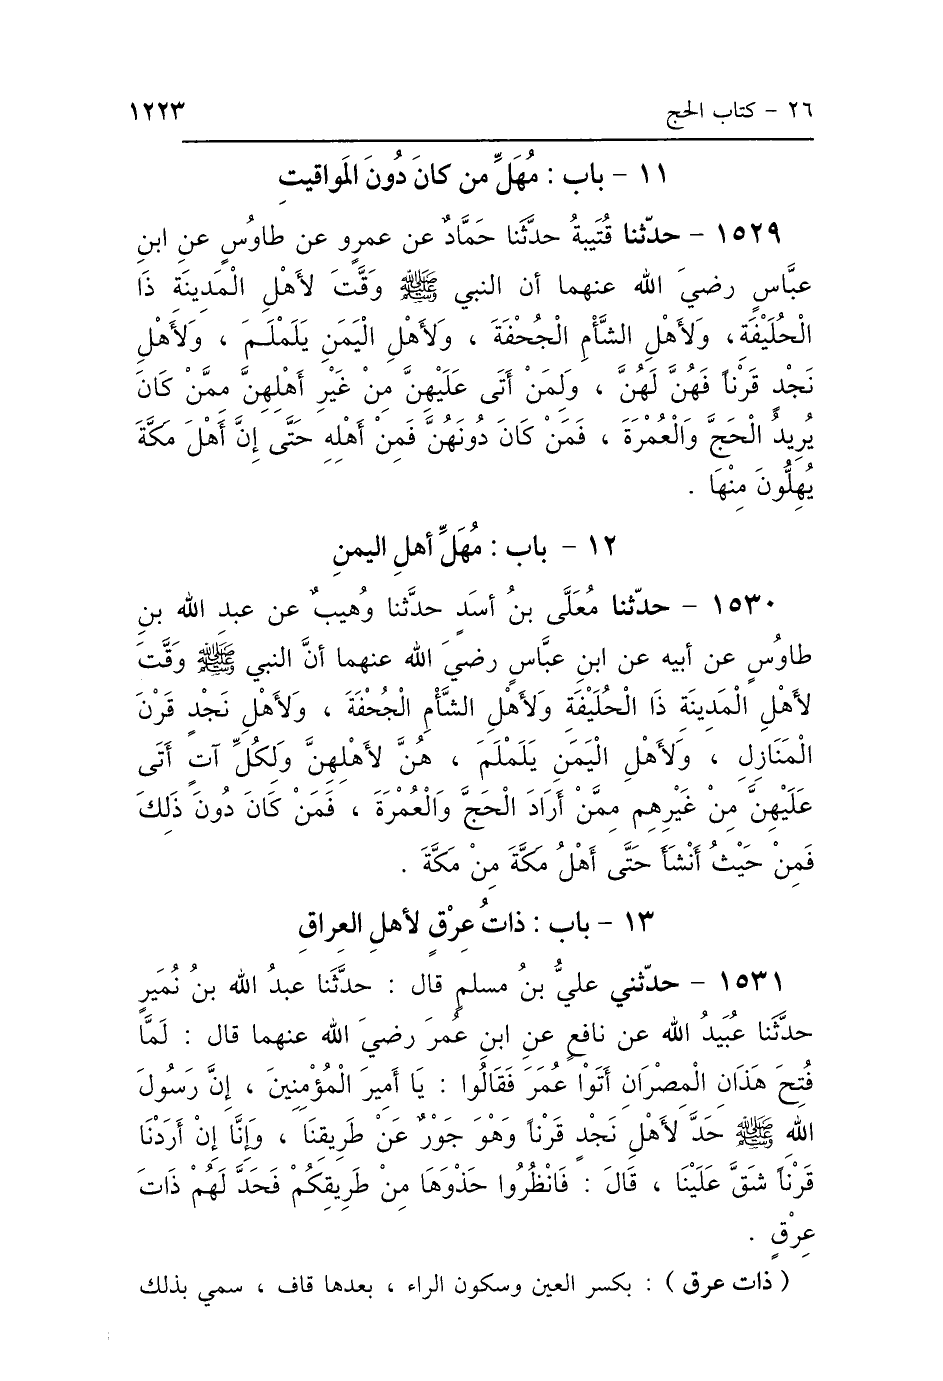 ٢٦ - كتاب الحج ١٢٢٣
١١ - باب : مُهَلِّ من كانَ دُونَ المَواقيتِ
١٥٢٩ - حدّثنا قُتَيبةُ حدَّثَنا حَمَّادٌ عن عمرٍو عن طاوُسٍ عنِ ابنِ
عبَّاسٍ رضيَ الله عنهما أن النبي ﷺ وَقَّتَ لأهْلِ الْمَدِينَةِ ذَا
الْحُلَيْفَةِ، وَلأهْلِ الشَّأْمِ الْجُحْفَةَ ، وَلأهْلِ الْيَمَنِ يَلَمْلَمَ ، وَلأهْلِ
نَجْدٍ قَرْناً فَهُنَّ لَهُنَّ ، وَلِمَنْ أَتَى عَلَيْهِنَّ مِنْ غَيْرِ أَهْلِهِنَّ مِمَّنْ كَانَ
يُرِيدُ الْحَجَّ وَالْعُمْرَةَ ، فَمَنْ كَانَ دُونَهُنَّ فَمِنْ أَهْلِهِ حَتَّى إِنَّ أَهْلَ مَكَّةَ
يُهِلُّونَ مِنْهَا .
١٢ - باب : مُهَلِّ أهلِ اليمنِ
١٥٣٠ - حدّثنا مُعَلَّى بنُ أسَدٍ حدَّثنا وُهَيبٌ عن عبدِ الله بنِ
طاوُسٍ عن أبيه عن ابنِ عبَّاسٍ رضيَ الله عنهما أنَّ النبي ﷺ وَقَّتَ
لأهْلِ الْمَدِينَةِ ذَا الْحُلَيْفَةِ وَلأهْلِ الشَّأْمِ الْجُحْفَةَ ، وَلأهْلِ نَجْدٍ قَرْنَ
الْمَنَازِلِ ، وَلأهْلِ الْيَمَنِ يَلَمْلَمَ ، هُنَّ لأهْلِهِنَّ وَلِكُلِّ آتٍ أَتَى
عَلَيْهِنَّ مِنْ غَيْرِهِم مِمَّنْ أَرَادَ الْحَجَّ وَالْعُمْرَةَ ، فَمَنْ كَانَ دُونَ ذَلِكَ
فَمِنْ حَيْثُ أَنْشَأَ حَتَّى أَهْلُ مَكَّةَ مِنْ مَكَّةَ .
١٣ - باب : ذاتُ عِرْقٍ لأهلِ العراقِ
١٥٣١ - حدّثني عليُّ بنُ مسلمٍ قال : حدَّثَنا عبدُ الله بنُ نُمَيرٍ
حدَّثَنا عُبَيدُ الله عن نافعٍ عنِ ابنِ عُمرَ رضيَ الله عنهما قال : لَمَّا
فُتِحَ هَذَانِ الْمِصْرَانِ أَتَوْا عُمَرَ فَقَالُوا : يَا أَمِيرَ الْمُؤْمِنِينَ ، إِنَّ رَسُولَ
الله ﷺ حَدَّ لأهْلِ نَجْدٍ قَرْناً وَهْوَ جَوْرٌ عَنْ طَرِيقِنَا ، وَإِنَّا إِنْ أَرَدْنَا
قَرْناً شَقَّ عَلَيْنَا ، قَالَ : فَانْظُرُوا حَذْوَهَا مِنْ طَرِيقِكُمْ فَحَدَّ لَهُمْ ذَاتَ
عِرْقٍ .
( ذات عرق ) : بكسر العين وسكون الراء ، بعدها قاف ، سمي بذلك